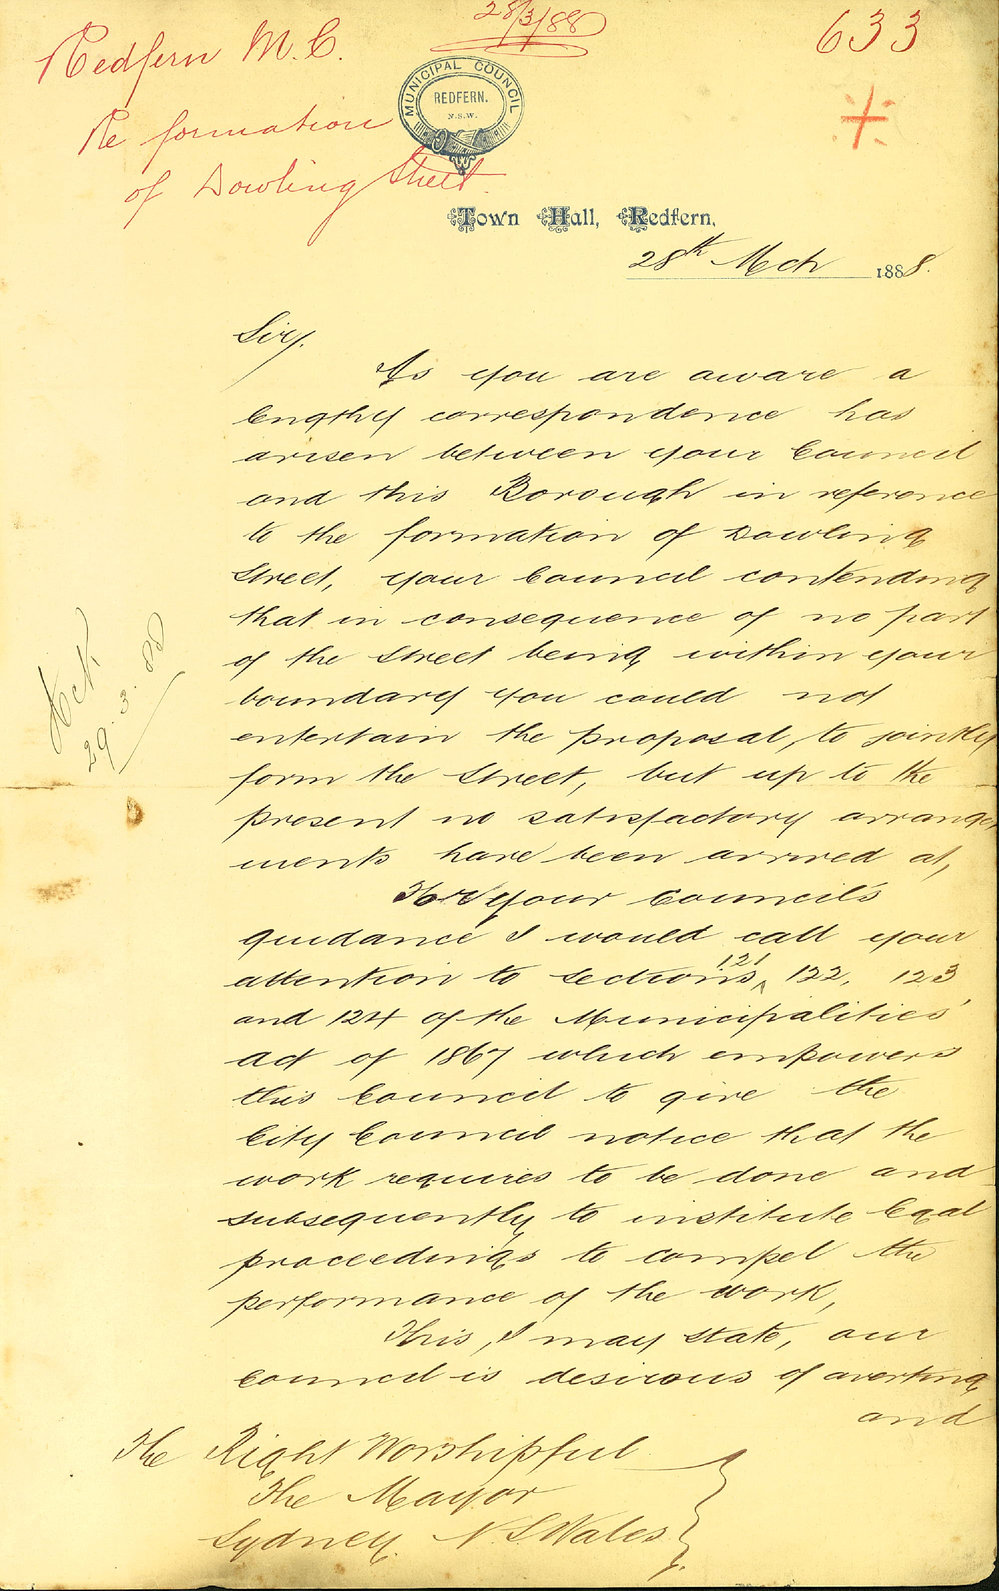 28/3/88
633
Redfern M.C.
MUNICIPAL COUNCIL
REDFERN.
N.S.W.
Re formation
of Dowling Street
Town Hall, Redfern,
28th Mch 1888.
Sir,
As you are aware a
lengthy correspondence has
arisen between your Council
and this Borough in reference
to the formation of Dowling
Street, your Council contending
that in consequence of no part
of the Street being within your
boundary you could not
entertain the proposal, to jointly
form the Street, but up to the
present no satisfactory arrange
ments have been arrived at,
For your Council's
guidance I would call your
attention to sections 121 122, 123
and 124 of the Municipalities'
Act of 1867 which empowers
this Council to give the
City Council notice that the
work requires to be done and
subsequently to institute legal
proceedings to compel the
performance of the work,
This, I may state, our
Council is desirous of averting
and
The Right Worshipful
The Mayor
Sydney. N.S. Wales
Ack
29.3.88